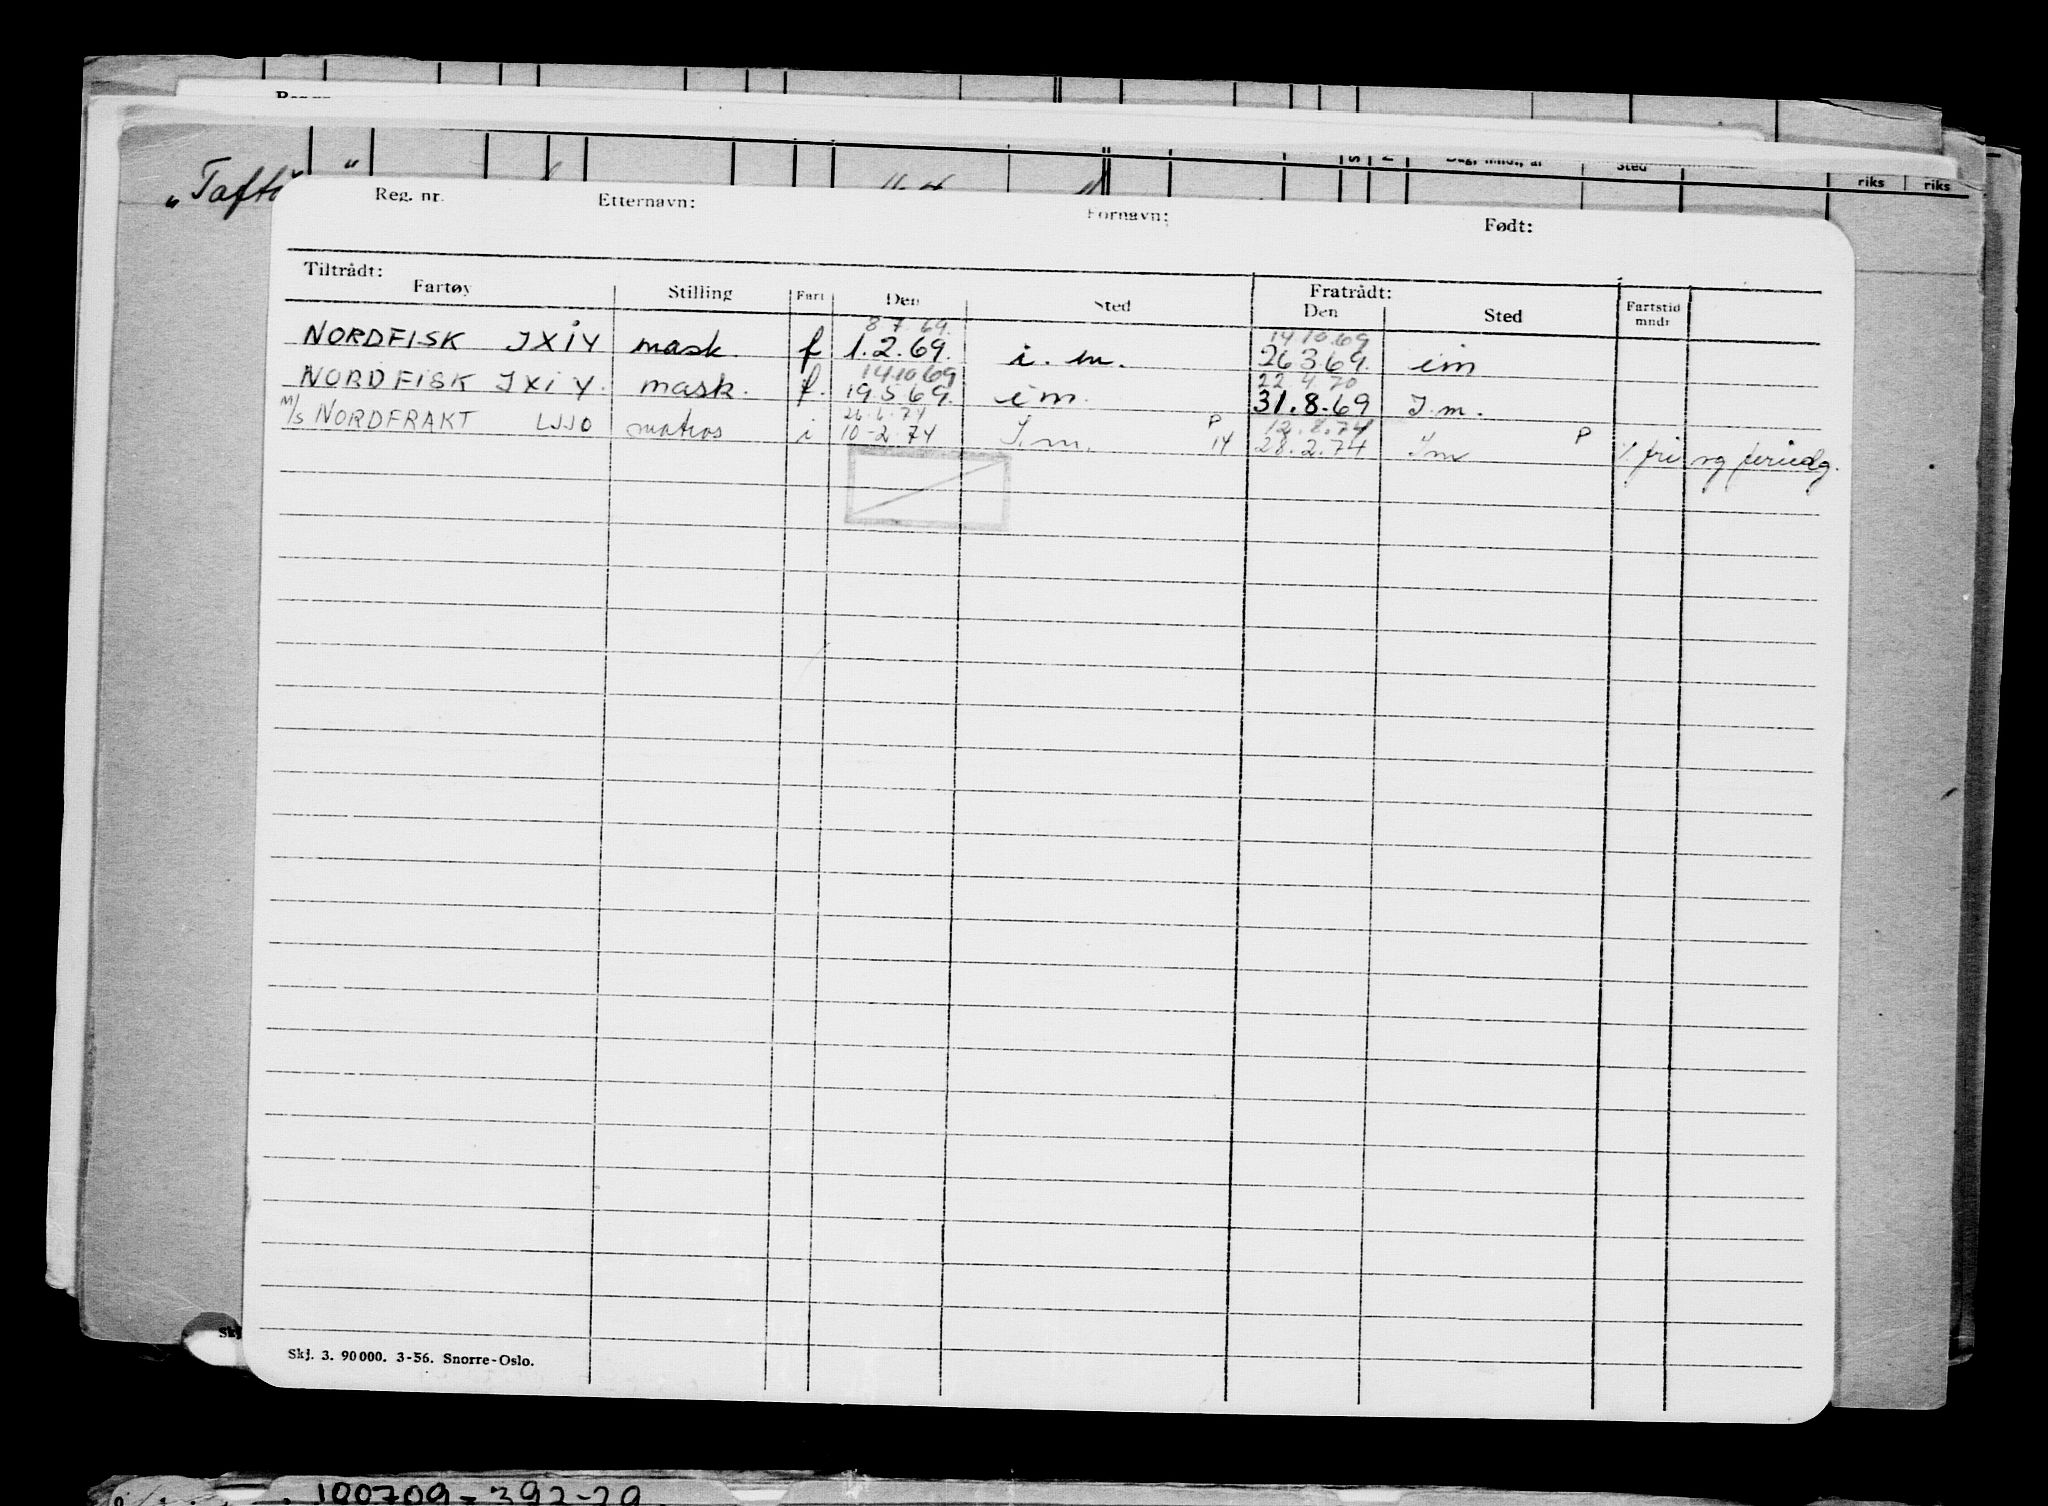 Reg. nr. Etternavn: Fornavn: Født:
Tiltrådt: Fratrådt:
Fartøy Stilling Fart Den Sted Den Sted Fartstid mndr
8.7.69. 14 10.69
NORDFISK JXIY mask. f 1.2.69. i.m. 26 3 69. im
14.10.69 22.4.70
NORDFISK JXIY. mask. f. 19.5.69. im. 31.8.69 I.m.
26.6.74 P 12.8.74 P
M/S NORDFRAKT LJJO matros i 10-2.74 I.m. 14 28.2.74 Im % fri og feriedg.
Skj. 3. 90000. 3-56. Snorre-Oslo.
riks riks
Sted
100709-392-29